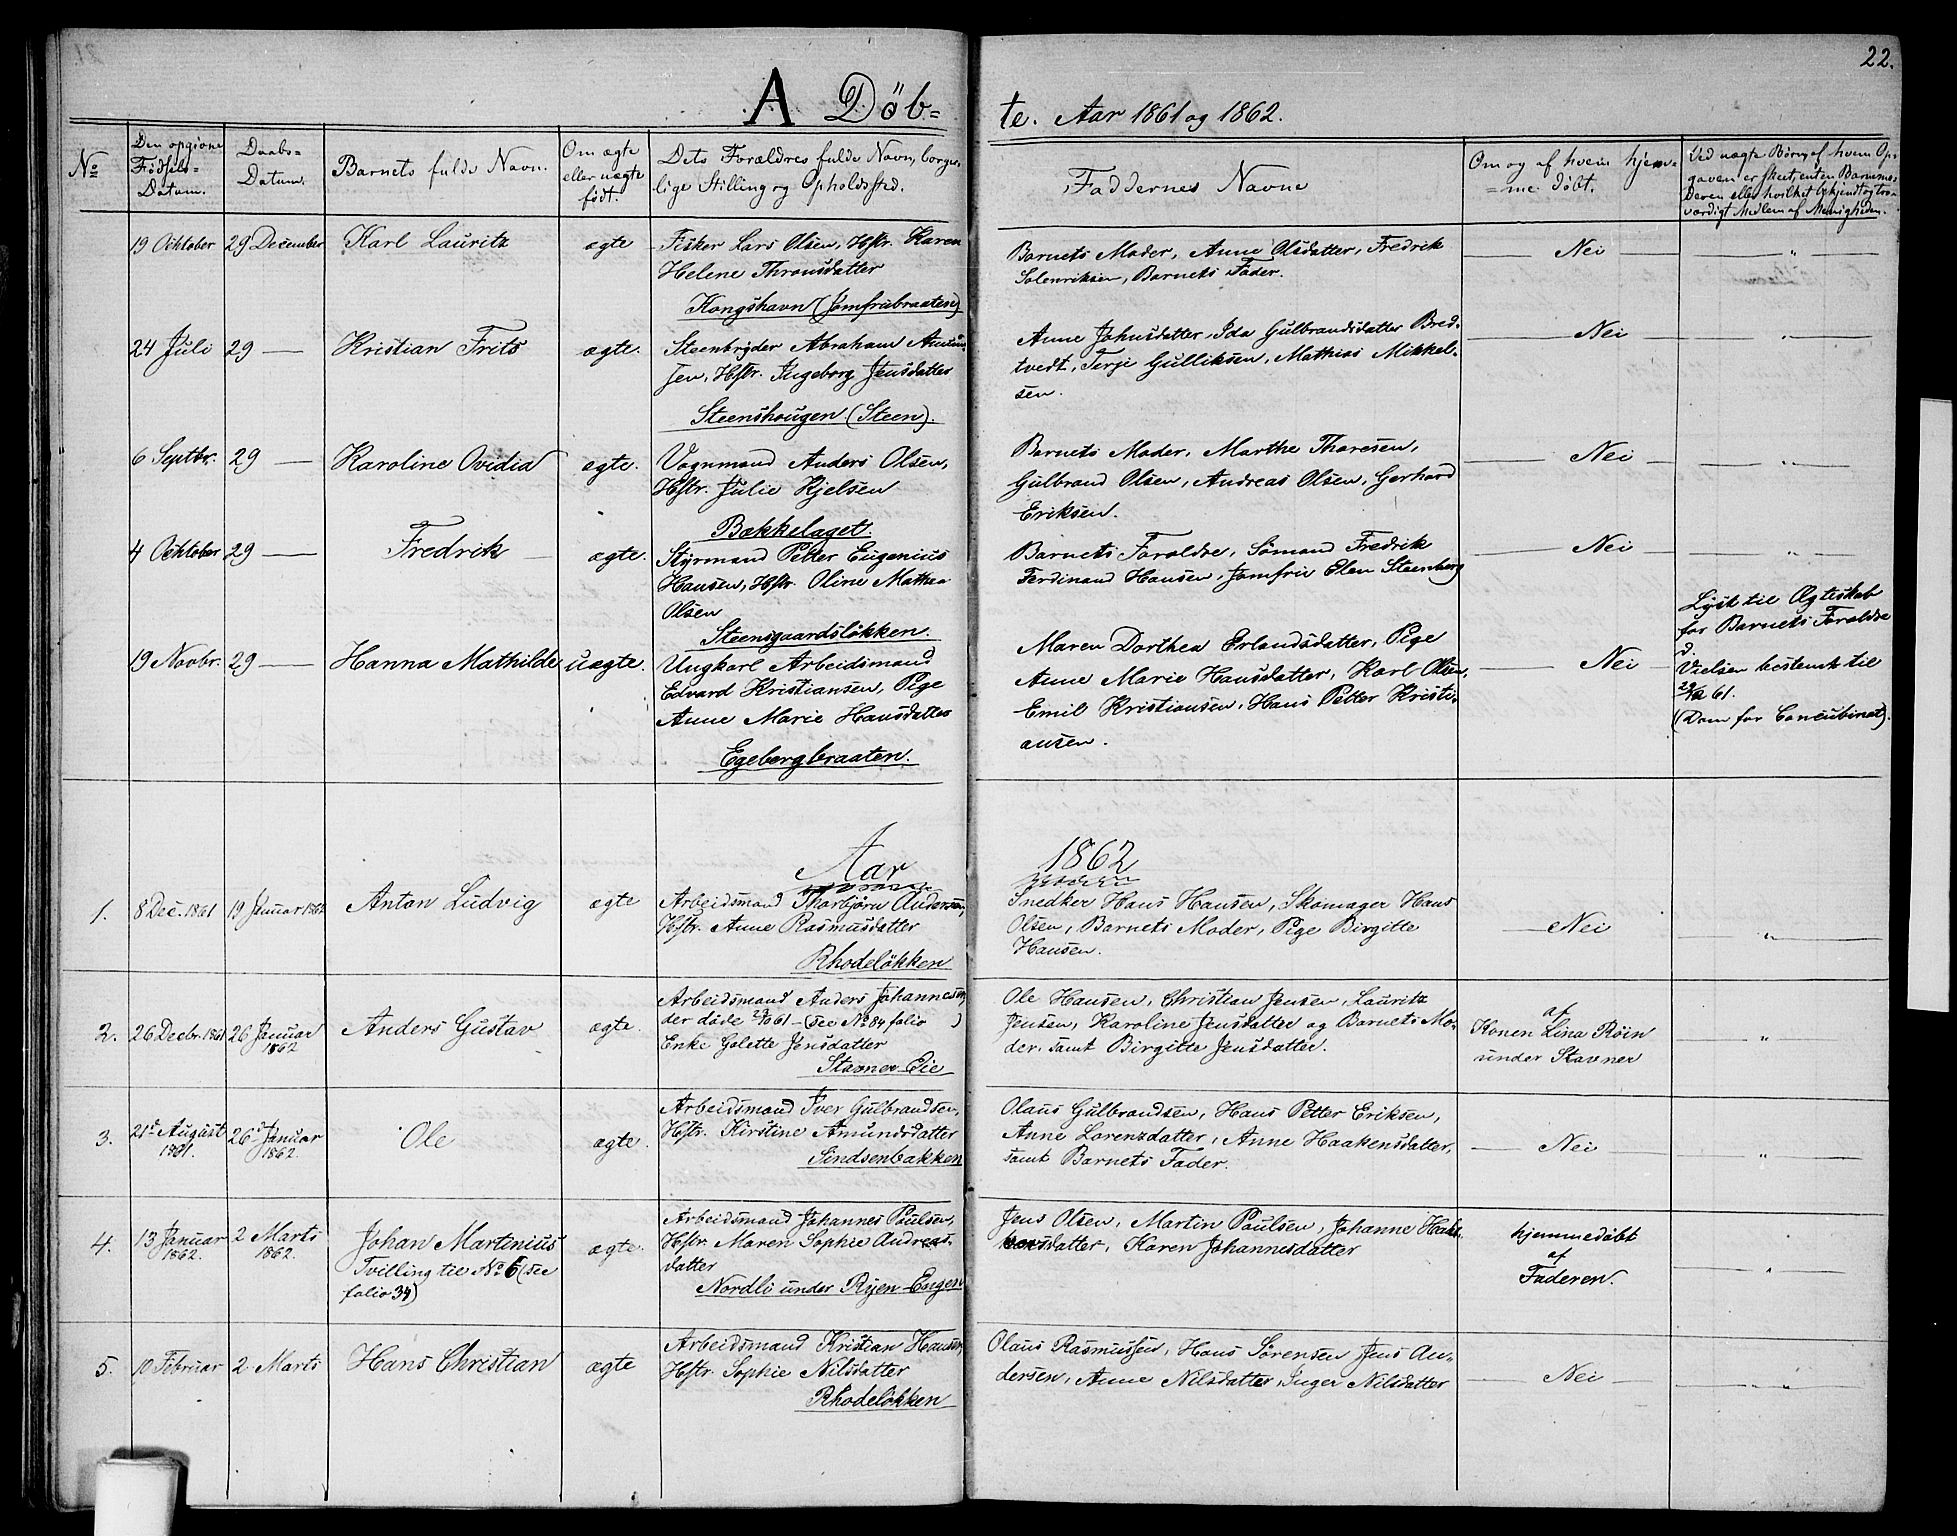 22.
A Döb=
te. Aar 1861 og 1862.
No
Den opgivne
Födsels-
Datum.
Daabs=
Datum.
Barnets fulde Navn.
Om ægte
eller uægte
født.
Dets Forældres fulde Navn, borger-
lige Stilling og Opholdssted.
Faddernes Navne
Om og af hvem hjem=
=me døbt.
Ved uægte Börn, af hvem Op-
gaven er skeet, enten Barnemo-
deren eller hvilket bekjendt og tro-
værdigt Medlem af Menigheden.
19 Ocktober
29 December
Karl Lauritz
ægte
Fisker Lars Olsen, Hstr. Karen
Helene Thronsdatter
Kongshavn (Jomfrubraaten)
Barnets Moder, Anne Olsdatter, Fredrik
Salenriksen, Barnets Fader.
Nei
"
24 Juli
29 —
Kristian Frits
ægte.
Steenbryder Abraham Amund
sen, Hstr. Ingeborg Jensdatter
Steenshougen (Steen).
Anne Johnsdatter, Ida Gulbrandsdatter Bred-
tvedt, Terje Gulliksen, Mathias Mikkel-
sen.
Nei
"
6 Septbr.
29 —
Karoline Ovidia
ægte.
Vognmand Anders Olsen,
Hstr. Julie Kjelsen
Bækkelaget.
Barnets Moder, Marthe Thoresen,
Gulbrand Olsen, Andreas Olsen, Gerhard
Eriksen.
Nei
"
4 Ocktober
29 —
Fredrik
ægte.
Styrmand Petter Eugenius
Hansen, Hstr. Oline Mathea
Olsen
Steensgaardslökken.
Barnets Foraldre, Sömand Fredrik
Ferdinand Hansen, Jomfru Elen Steenberg
Nei
"
19 Novbr.
29 —
Hanna Mathilde
uægte.
Ungkarl Arbeidsmand
Edvard Kristiansen, Pige
Anne Marie Hansdatter
Egebergbraaten.
Maren Dorthea Erlandsdatter, Pige
Anne Marie Hansdatter, Karl Olsen,
Emil Kristiansen, Hans Petter Kristi-
ansen.
Nei
Lyst til Ægteskab
for Barnets Foraldre
d.
Vielsen bestemt til
29/12 61.
(Dom for Concubinat).
Aar
1862
1.
8 Dec. 1861
19 Januar 1862
Anton Ludvig
ægte
Arbeidsmand Thorbjörn Andersen,
Hstr. Anne Rasmusdatter
Rhodelökken
Snedker Hans Hansen, Skomager Hans
Olsen, Barnets Moder, Pige Birgitte
Hansen.
Nei
"
2.
26 Decbr. 1861
26 Januar
1862
Anders Gustav
ægte.
Arbeidsmand Anders Johannesen,
der döde 61 - (see No 84 folio )
Enke Golette Jensdatter
Stavner Eie
Ole Hansen, Christian Jensen, Lauritz
Jensen, Karoline Jensdatter og Barnets Mo-
der, samt Birgitte Jensdatter.
af
Konen Lina Röin
under Stavner
"
3.
21d August
1861.
26d Januar
1862.
Ole
ægte.
Arbeidsmand Iver Gulbrandsen,
Hstr. Kirstine Amundsdatter
Sindsenbakken
Olaus Gulbrandsen, Hans Petter Eriksen,
Anne Lorenzdatter, Anne Haakensdatter,
samt Barnets Fader.
Nei
"
4.
13 Januar
1862.
2 Marts
1862.
Johan Martinius
Tvilling til No 6 (see
folio 34)
ægte.
Arbeidsmand Johannes Paulsen,
Hstr. Maren Sophie Andreas-
datter
Nordli under Ryen-Engen
Jens Olsen, Martin Paulsen, Johanne Haa-
kensdatter, Karen Johannesdatter
hjemmedöbt
af
Faderen.
"
5.
10 Februar
2 Marts
Hans Christian
ægte
Arbeidsmand Kristian Hansen,
Hstr. Sophie Nilsdatter
Rhodelökken
Olaus Rasmussen, Hans Sörensen Jens An-
dersen, Anne Nilsdatter, Inger Nilsdatter
Nei
"